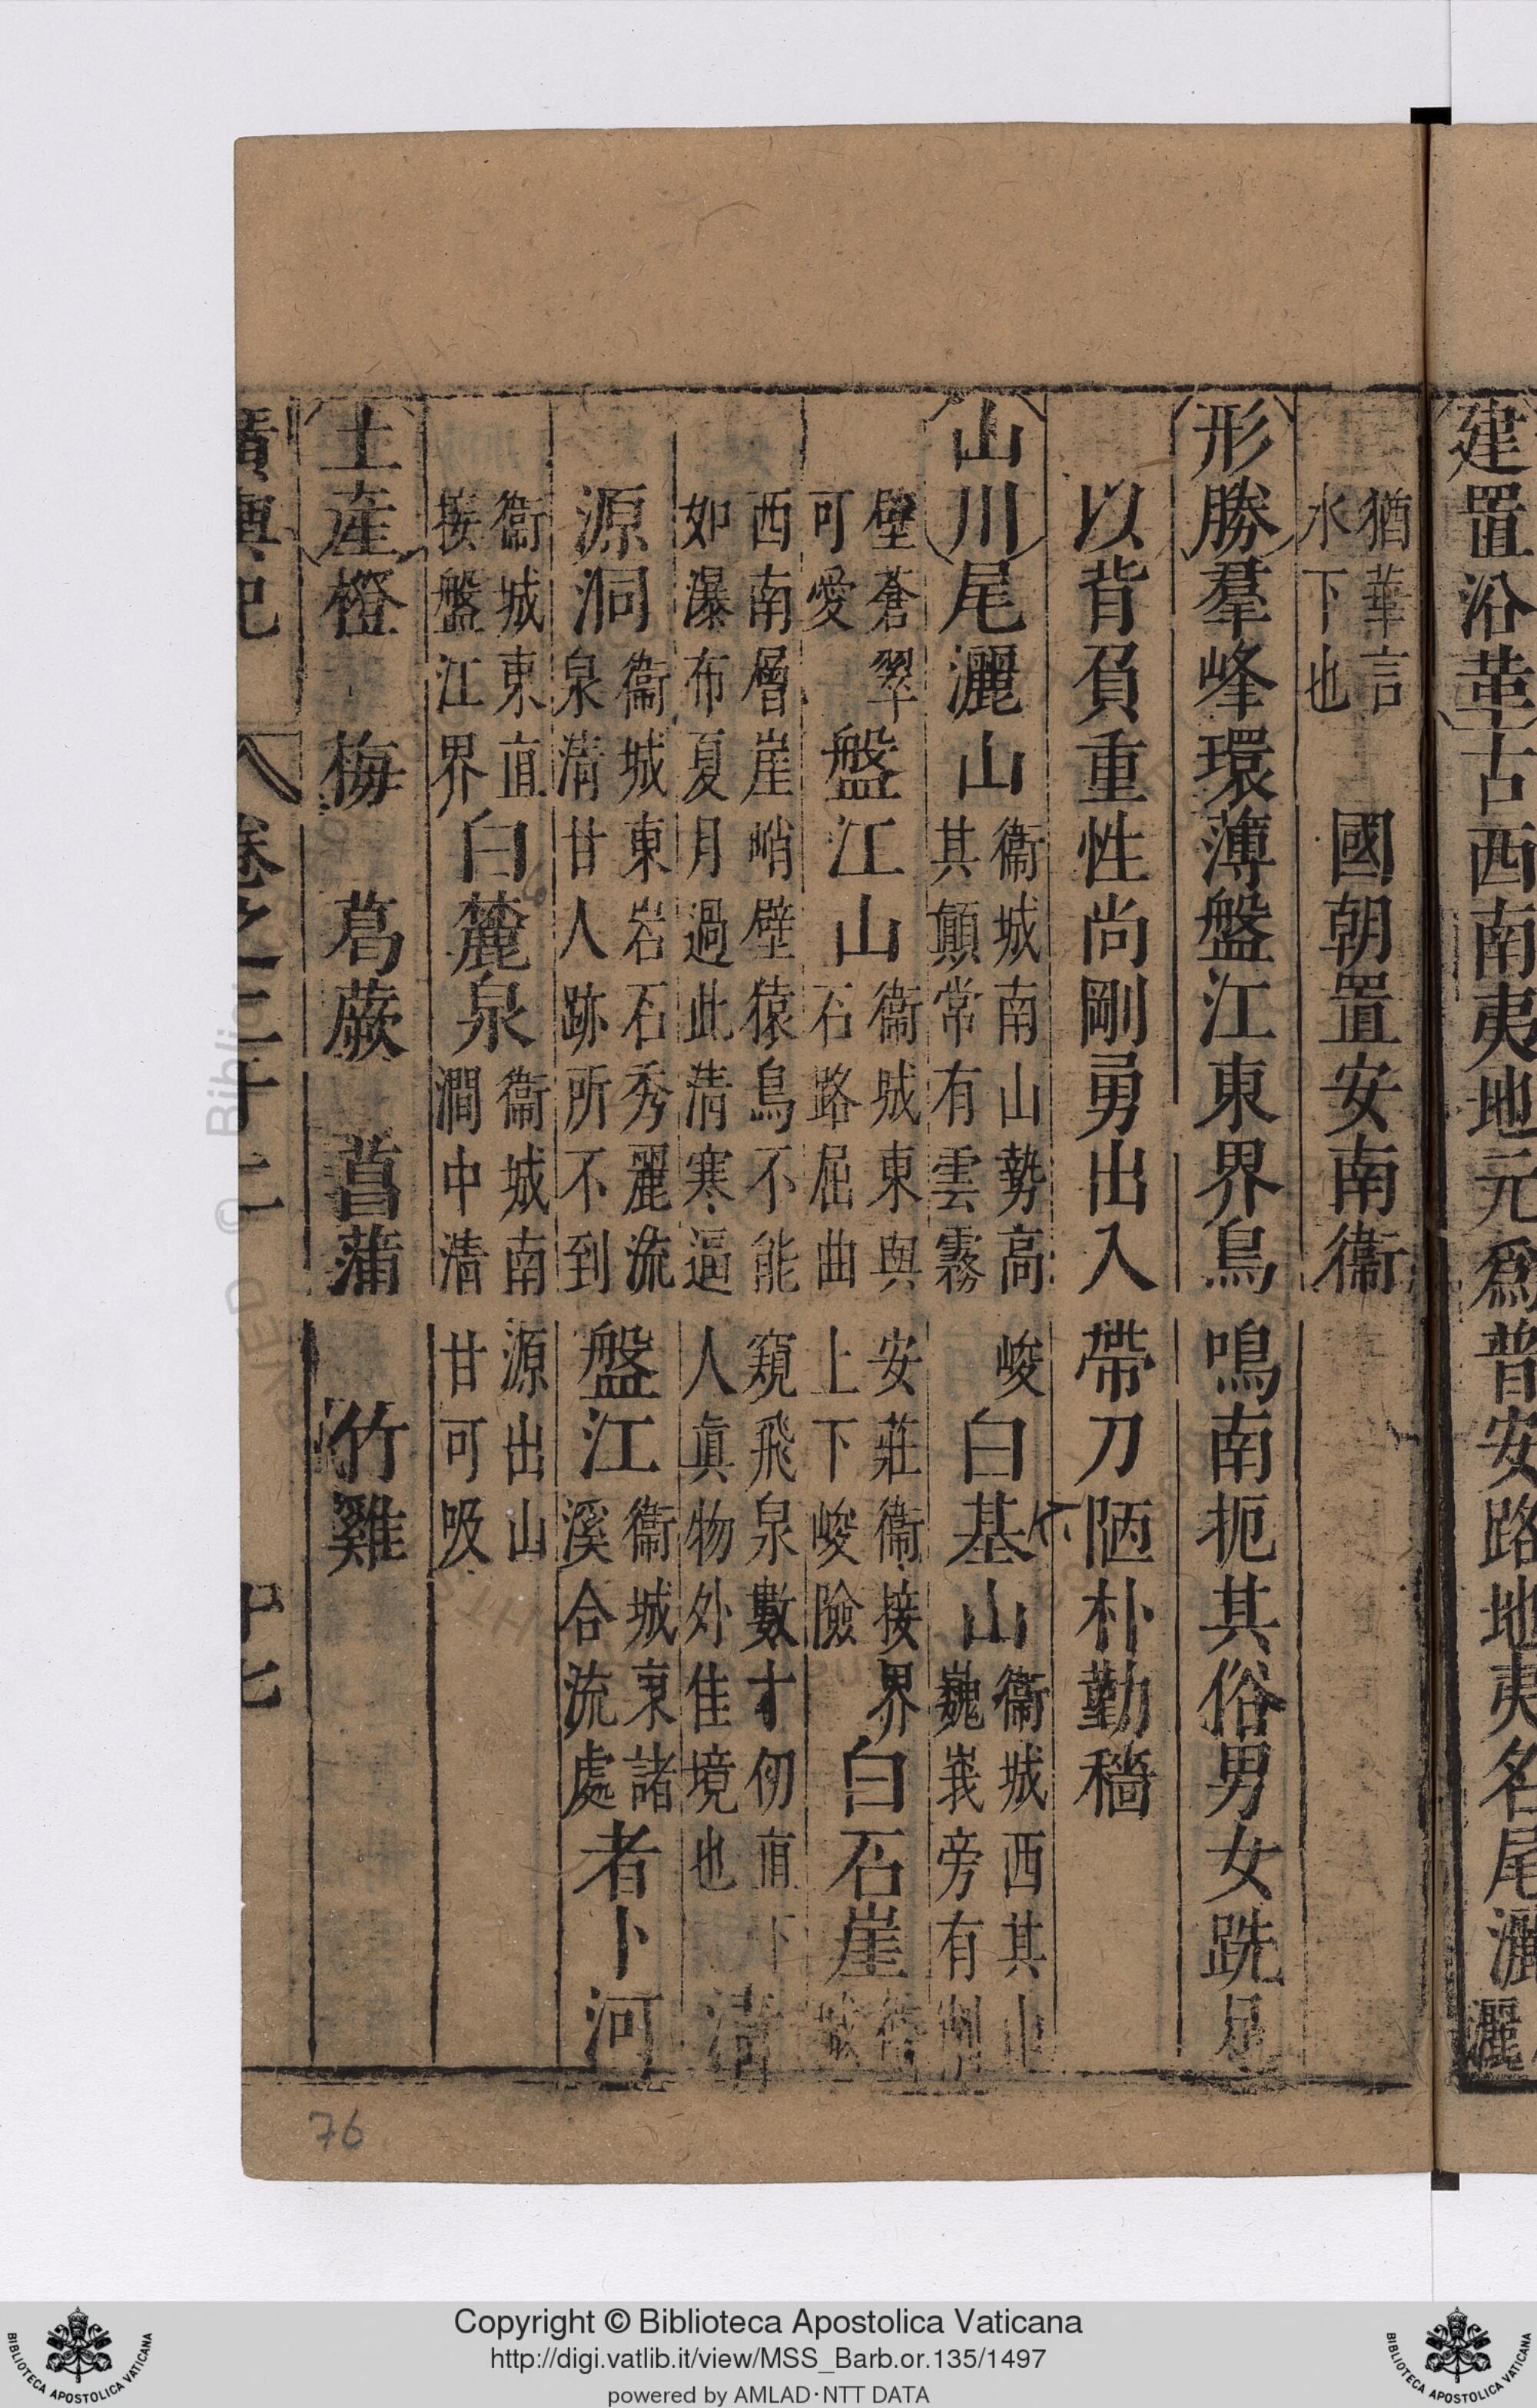 建置沿革古西南夷地元為普安路地夷名尾灑
猶華言
水下也
國朝置安南衞
形勝羣峰環薄盤江東界鳥鳴南扼其俗男女跣足
以背負重性尚剛勇出入帶刀陋朴勤穡
山川尾灑山
衞城南山勢高峻
其顛常有雲霧
白基山
衞城西其山
巍峩旁有
壁蒼翠
可愛
盤江山
衞城東與安莊衞接界
石路屈曲上下峻險
白石崖
衞城
西南層崖峭壁猿鳥不能窺飛泉數十仞直下
如瀑布夏月過此清寒逼人眞物外佳境也
清
源洞
衞城東岩石秀麗流
泉清甘人跡所不到
盤江
衞城東諸
溪合流處
者卜河
衞城東直
接盤江界
白麓泉
衞城南源出山
澗中清甘可吸
土產橙 梅 葛蕨 菖蒲 竹雞
廣輿記 卷之二十二 十七
76
Copyright © Biblioteca Apostolica Vaticana
http://digi.vatlib.it/view/MSS_Barb.or.135/1497
powered by AMLAD·NTT DATA
BIBLIOTECA APOSTOLICA VATICANA
BIBLIOTECA APOSTOLICA VATICANA